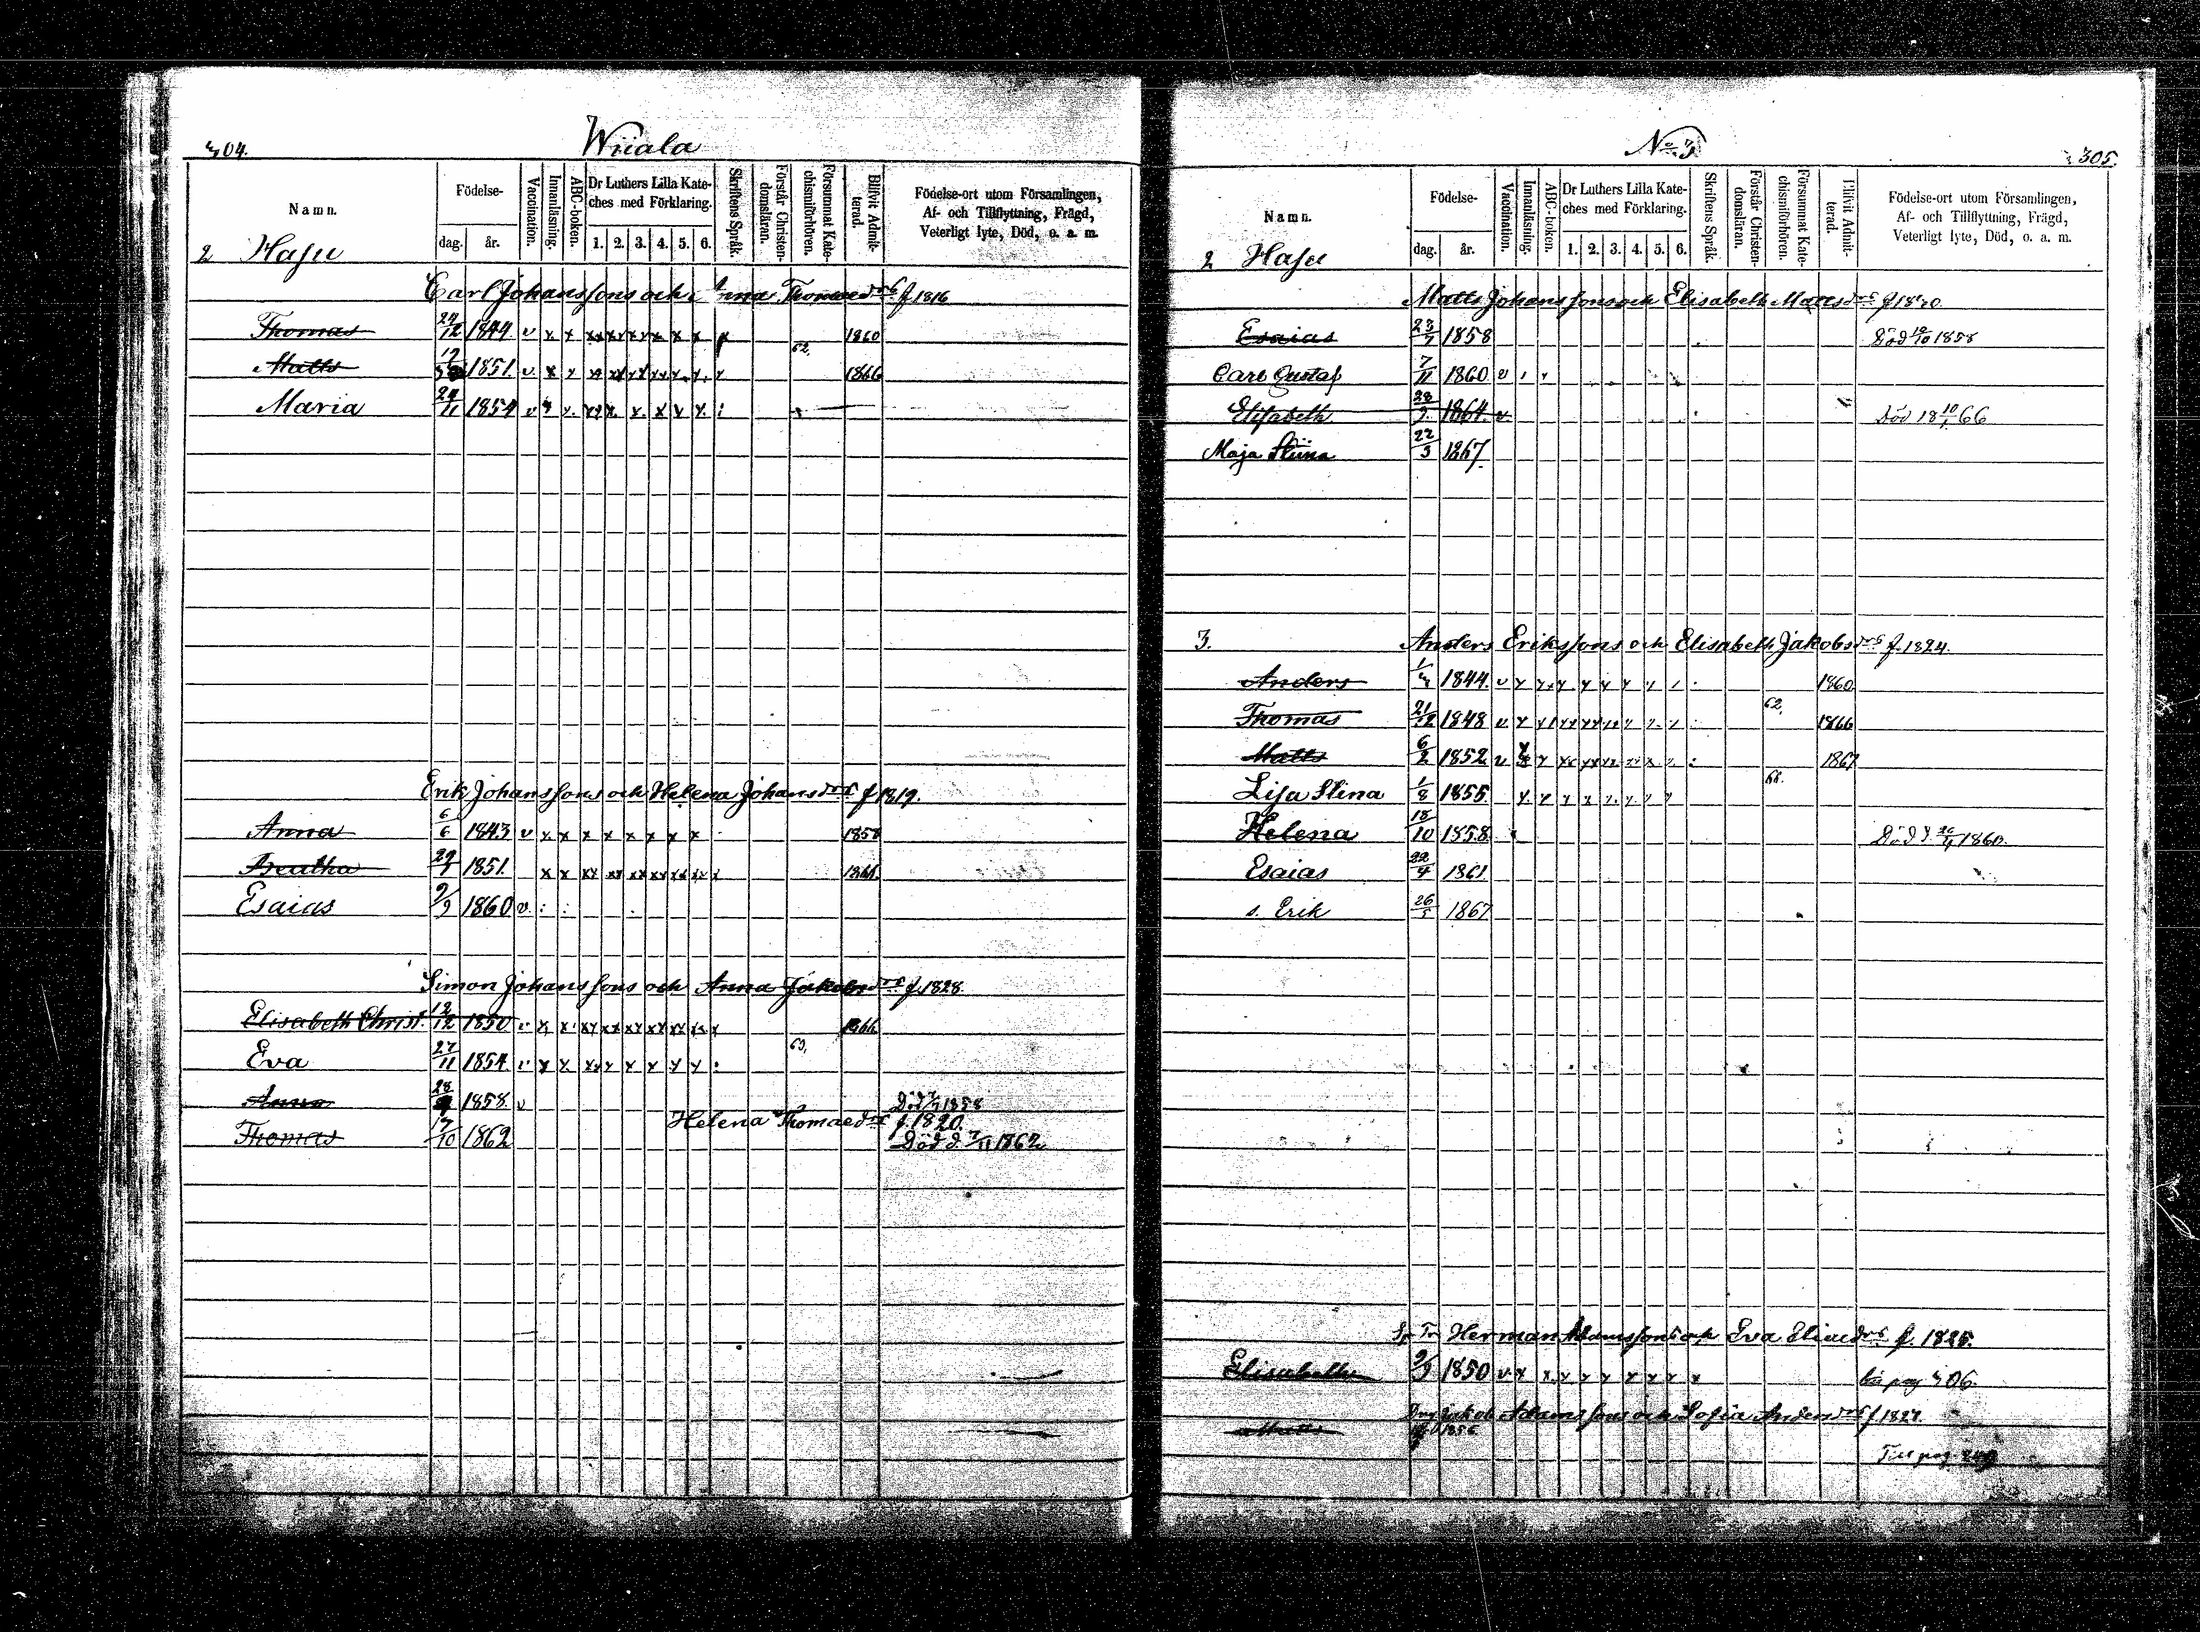 304.
Wiiala
Namn.
Födelse-
dag. år.
Vaccination.
Innanläsning.
ABC-boken.
Dr Luthers Lilla Kate-
ches med Förklaring.
1. 2. 3. 4. 5. 6.
Skriftens Språk.
Förstår Christen-
domsläran.
Försummat Kate-
chismiförhören.
Blifvit Admit-
terad.
Födelse-ort utom Församlingen,
Af- och Tillflyttning, Frägd,
Veterligt lyte, Död, o. a. m.
2 Hasu
Carl Johanssons och Anna Thomaedr f 1816
Thomas 24/12 1844 v x x 1860
62,
Matts 1851. v x x 1866
Maria 24/11 1854 v x x
Erik Johanssons och Helena Johansdr f 1819.
Anna 6/6 1843 v x x x x x x x x 1858
Beatha 1851. x x 1866
Esaias 9/9 1860 v
Simon Johanssons och Anna Jakobsdr f. 1828.
Elisabeth Christ. 12/12 1850 1866
63,
Eva 27/11 1854
Anna 1858. v Död 1858
Helena Thomaedr f. 1820.
Thomas 17/10 1862 Död d. 7/11 1862
No 3
305.
Namn.
Födelse-
dag. år.
Vaccination.
Innanläsning.
ABC-boken.
Dr Luthers Lilla Kate-
ches med Förklaring.
1. 2. 3. 4. 5. 6.
Skriftens Språk.
Förstår Christen-
domsläran.
Försummat Kate-
chismiförhören.
Blifvit Admit-
terad.
Födelse-ort utom Församlingen,
Af- och Tillflyttning, Frägd,
Veterligt lyte, Död, o. a. m.
2 Hasu
Matts Johanssons och Elisabeth Mattsdr
Esaias 23/7 1858 Död 12/10 1858
Carl Gustaf 7/11 1860 v
Elisabeth 1864. v Död 18 10/1 66
Maja Stiina 22/3 1867.
3. Anders Erikssons och Elisabeth Jakobsdr f. 1824.
Anders 1844. v 1860
62,
Thomas 21/12 1848 v 1866
Matts 6/2 1852 v 1867
68.
Lisa Stina 1/8 1855.
Helena 18/10 1858 Död d 1860.
Esaias 22/4 1861
s. Erik 26/5 1867
Herman Adamssons och Eva Eliaedr f. 1825.
Elisabeth 9/9 1850 v x pag 306.
Jakob Adamssons och Sofia Andersdr f. 1827.
Matts 1856
Till pag